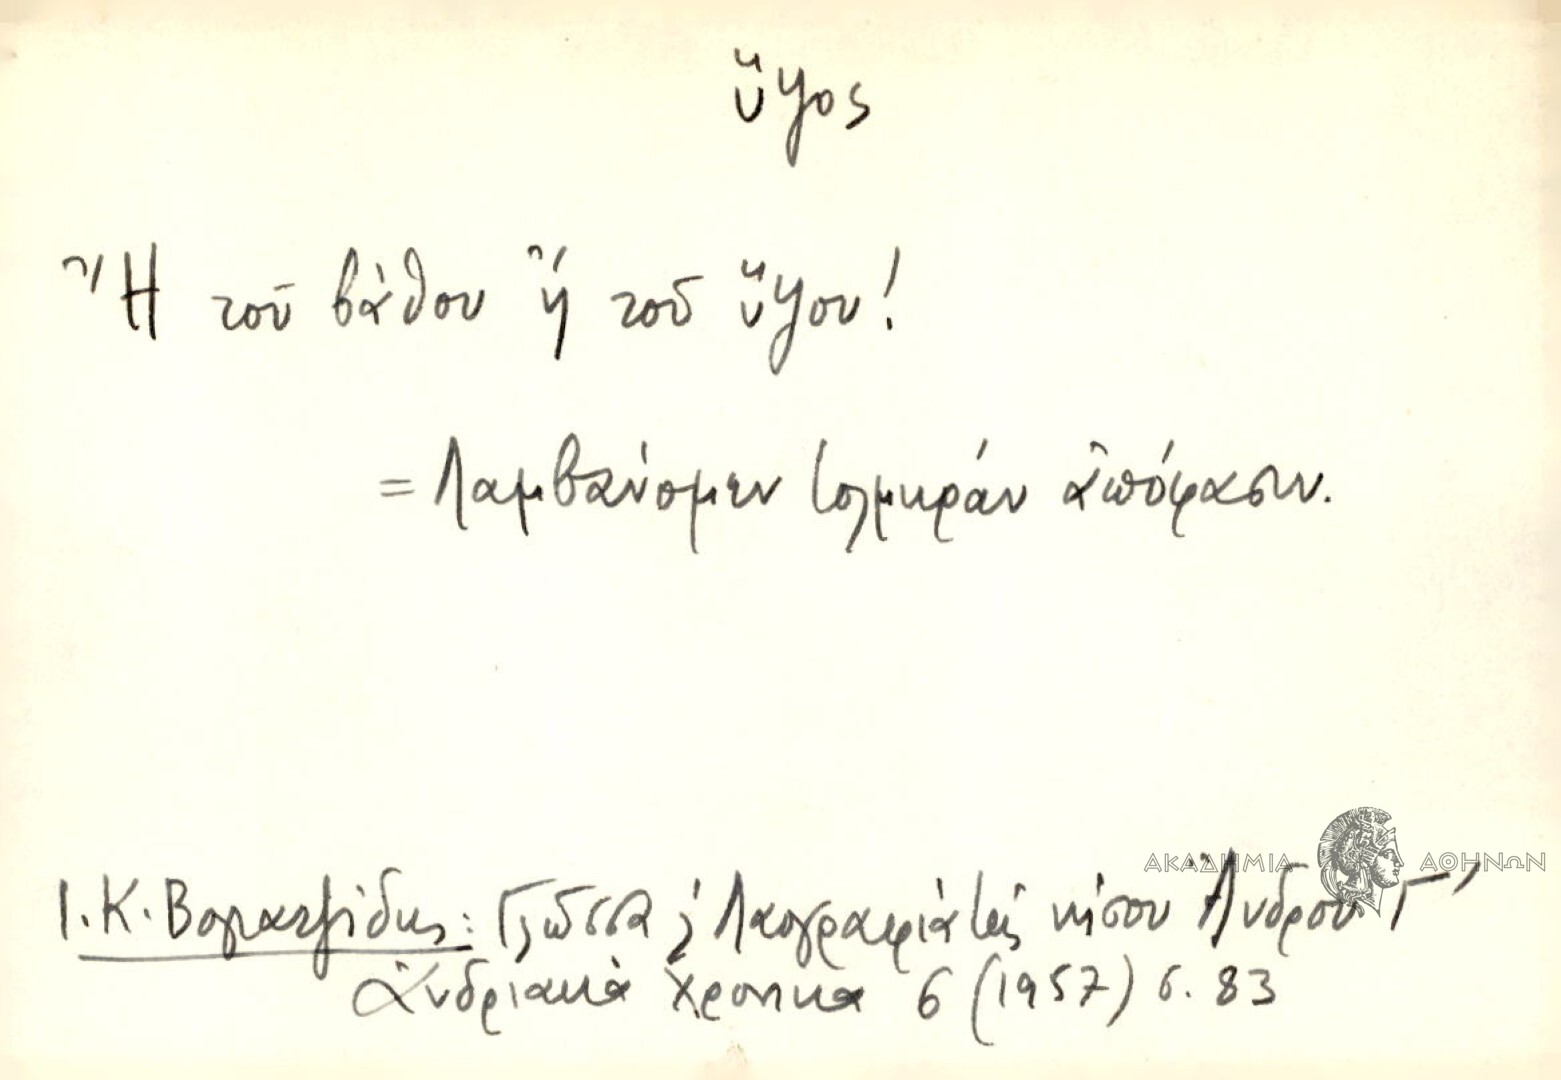 ὕψος
Ἢ τοῦ βάθου ἢ τοῦ ὕψου!
= Λαμβάνομεν τολμηρὰν ἀπόφασιν.
ΑΚΑΔΗΜΙΑ ΑΘΗΝΩΝ
Ι. Κ. Βογιατζίδης: Γλῶσσα ϗ Λαογραφία τῆς νήσου Ἄνδρου Γ'
Ἀνδριακὰ Χρονικὰ 6 (1957) σ. 83